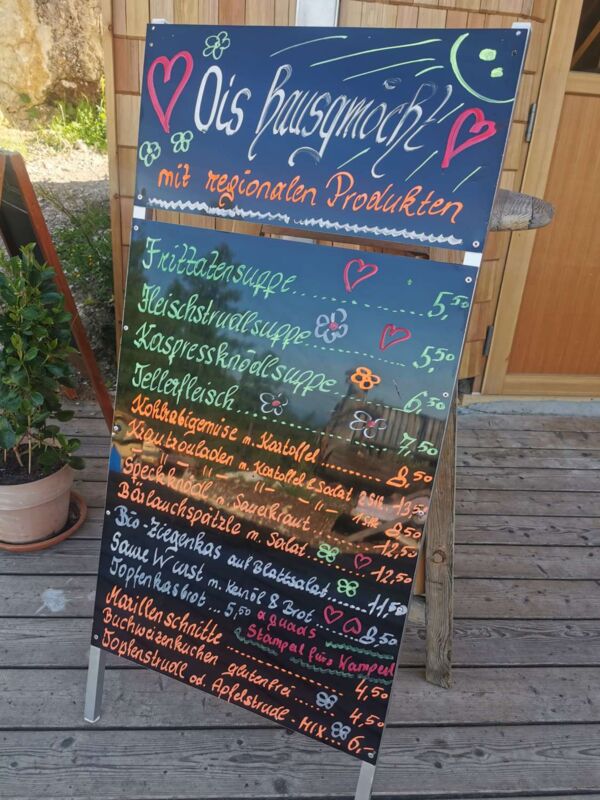 Ois hausgmocht
mit regionalen Produkten
Frittatensuppe........ 5,50
Fleischstrudlsuppe........ 5,50
Kaspressknödlsuppe........ 6,50
Tellerfleisch........ 7,50
Kohlrabigemüse m. Kartoffel........ 8,50
Krautrouladen m. Kartoffel & Salat 2 Stk. 13,50
-"- -"- -"- -"- 1 Stk 8,50
Speckknödl a. Sauerkraut........ 12,50
Bärlauchspätzle m. Salat........ 12,50
Bio-Ziegenkas auf Blattsalat........ 11,50
Saure Wurst m. Kernöl & Brot........ 8,50
Topfenkasbrot... 5,50 a guads
Stamperl fürs Wamperl
Marillenschnitte........ 4,50
Buchweizenkuchen glutenfrei........ 4,50
Topfenstrudl od. Apfelstrudl - MIX... 6,-